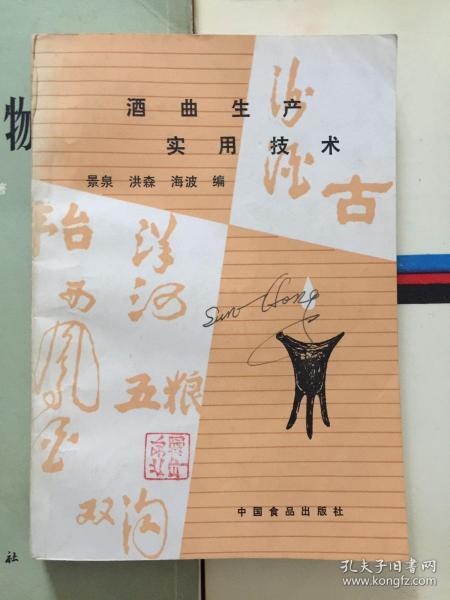 酒曲生产
实用技术
景泉 洪森 海波 编
汾酒
古
台
西凤
洋河
五粮
双沟
Sun Hong
中国食品出版社
物
社
孔夫子旧书网
www.kongfz.com